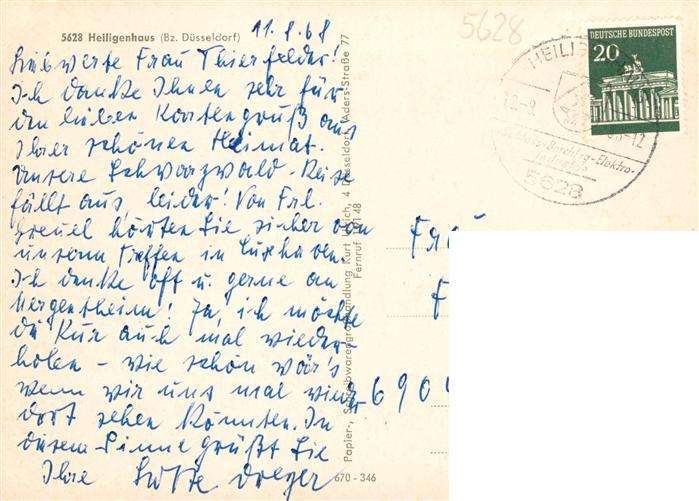 5628 Heiligenhaus (Bz. Düsseldorf)
11.8.68
5628
DEUTSCHE BUNDESPOST
20
HEILIG
-12
-Elektro-
5628
Liebwerte Frau Thierfelder!
Ich danke Ihnen sehr für
den lieben Kartengruß aus
Ihrer schönen Heimat.
Unsere Schwarzwald-Reise
fällt aus, leider! Von Frl.
Greuel hörten Sie sicher von
unserm Treffen in Cuxhaven.
Ich denke oft u. gerne an
Mergentheim! Ja, ich möchte
die Kur auch mal wieder-
holen - wie schön wär's
wenn wir uns mal
dort sehen könnten. In
diesem Sinne grüßt Sie
Ihre Lotte Dreger
Papier-, Schreibwarengroßhandlung Kurt Ulrich, 4 Düsseldorf, Aders-Straße 77
Fernruf 1 01 48
670 - 346
Fra
F
6900